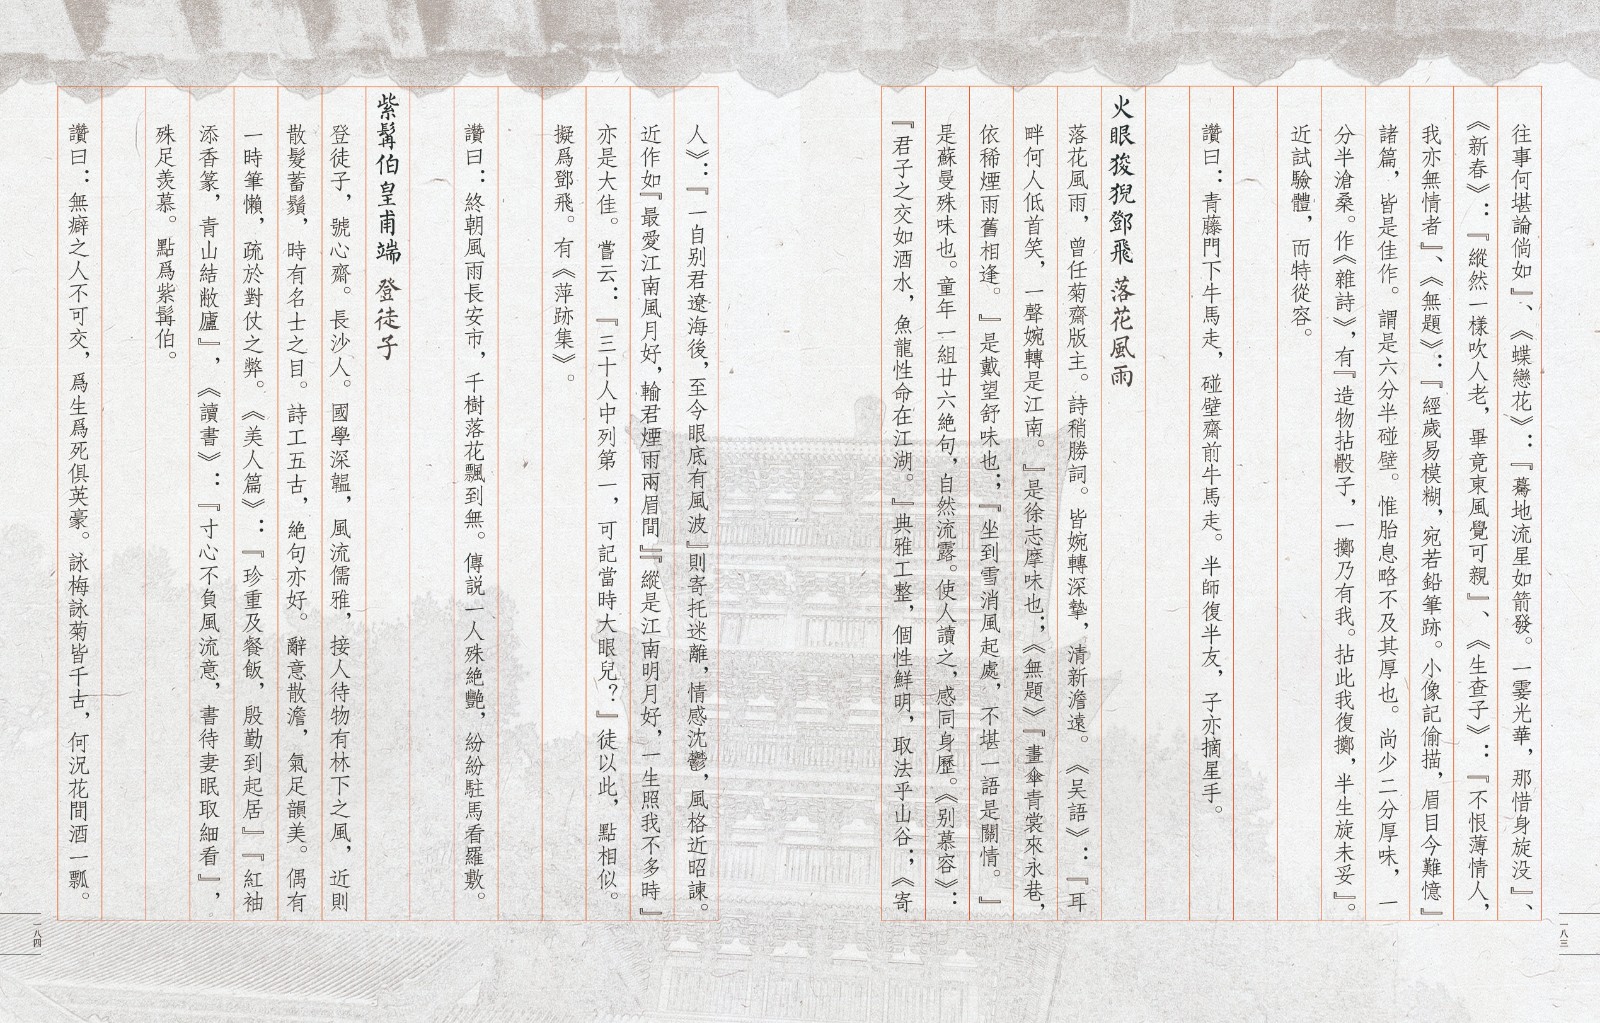 往事何堪論倘如』、《蝶戀花》：『驀地流星如箭發。一霎光華，那惜身旋没』、
《新春》：『縱然一樣吹人老，畢竟東風覺可親』、《生查子》：『不恨薄情人，
我亦無情者』、《無題》：『經歲易模糊，宛若鉛筆跡。小像記偷描，眉目今難憶』
諸篇，皆是佳作。謂是六分半碰壁。惟胎息略不及其厚也。尚少二分厚味，一
分半滄桑。作《雜詩》，有『造物拈骰子，一擲乃有我。拈此我復擲，半生旋未妥』。
近試驗體，而特從容。
讚曰：青藤門下牛馬走，碰壁齋前牛馬走。半師復半友，子亦摘星手。
火眼狻猊鄧飛 落花風雨
落花風雨，曾任菊齋版主。詩稍勝詞。皆婉轉深摯，清新澹遠。《吴語》：『耳
畔何人低首笑，一聲婉轉是江南。』是徐志摩味也；《無題》『畫傘青裳來永巷，
依稀煙雨舊相逢。』是戴望舒味也；『坐到雪消風起處，不堪一語是關情。』
是蘇曼殊味也。童年一組廿六絶句，自然流露。使人讀之，感同身歷。《别慕容》：
『君子之交如酒水，魚龍性命在江湖。』典雅工整，個性鮮明，取法乎山谷；《寄
人》：『一自别君遼海後，至今眼底有風波』則寄托迷離，情感沈鬱，風格近昭諫。
近作如『最愛江南風月好，輸君煙雨兩眉間』『縱是江南明月好，一生照我不多時』
亦是大佳。嘗云：『三十人中列第一，可記當時大眼兒？』徒以此，點相似。
擬爲鄧飛。有《萍跡集》。
讚曰：終朝風雨長安市，千樹落花飄到無。傳説一人殊絶艷，紛紛駐馬看羅敷。
紫髯伯皇甫端 登徒子
登徒子，號心齋。長沙人。國學深韞，風流儒雅，接人待物有林下之風，近則
散髮蓄鬚，時有名士之目。詩工五古，絶句亦好。辭意散澹，氣足韻美。偶有
一時筆懶，疏於對仗之弊。《美人篇》：『珍重及餐飯，殷勤到起居』『紅袖
添香篆，青山結敝廬』，《讀書》：『寸心不負風流意，書待妻眠取細看』，
殊足羨慕。點爲紫髯伯。
讚曰：無癖之人不可交，爲生爲死俱英豪。詠梅詠菊皆千古，何況花間酒一瓢。
一八三
一八四